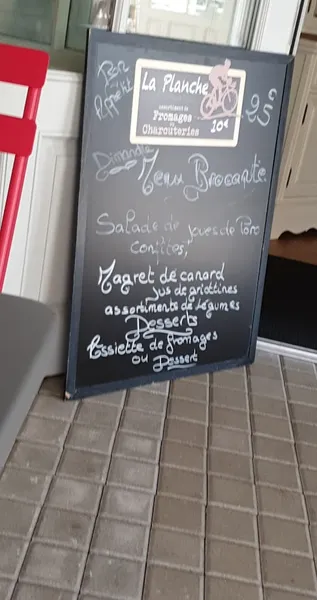 Bon
Appétit
La Planche
assortiment de
Fromages
ou
Charcuteries
10€
25€
Dimanche
Menu Brocante
Salade de joues de Porc
confites,
Magret de canard
Jus de griottines
assortiments de légumes
Desserts
Assiette de fromages
ou Dessert